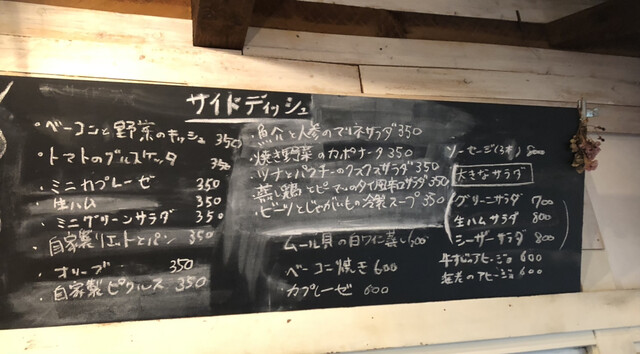 サイドディッシュ
・ベーコンと野菜のキッシュ 350
・トマトのブルスケッタ 350
・ミニカプレーゼ 350
・生ハム 350
・ミニグリーンサラダ 350
・自家製リエットとパン 350
・オリーブ 350
・自家製ピクルス 350
・魚介と人参のマリネサラダ 350
・焼き野菜のカポナータ 350
・ツナとパクチーのクスクスサラダ 350
・蒸し鶏とピーマンのタイ風辛口サラダ 350
・ビーツとじゃがいもの冷製スープ 350
ムール貝の白ワイン蒸し 600
・ベーコン焼き 600
・カプレーゼ 600
ソーセージ(3本) 800
大きなサラダ
グリーンサラダ 700
生ハムサラダ 800
シーザーサラダ 800
牛すじのアヒージョ 600
のアヒージョ 600